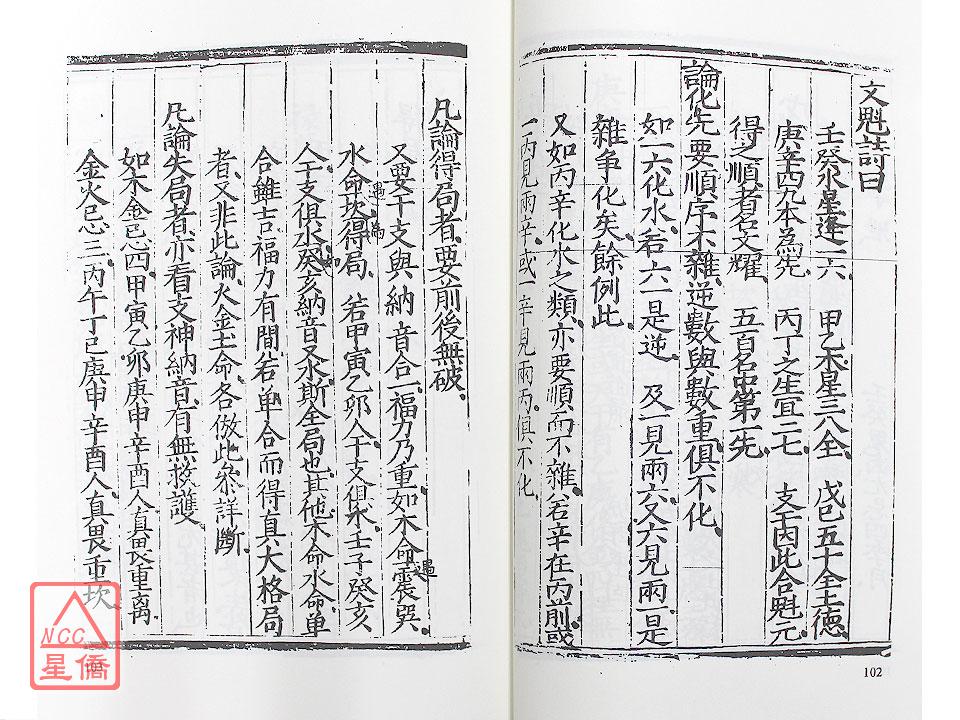 文魁詩曰
壬癸水星逢一六 甲乙木星三八全 戊己五十全土德
庚辛四九本為先 丙丁之生宜二七 支干因此合魁元
得之順者名文耀 五百名中第一先
論化先要順序不雜逆數與數重俱不化
如一六化水若六一是逆 及一見兩六又六見兩一是
雜爭化矣餘例此
又如丙辛化水之類亦要順而不雜若辛在丙前或
一丙見兩辛或一辛見兩丙俱不化
102
凡論得局者要前後無破
又要干支與納音合一福力乃重如木命遇震巽
水命遇坎為得局 若甲寅乙卯人干支俱木壬子癸亥
人干支俱水癸亥納音又水斯全局也其他木命水命單
合雖吉福力有間若单合而得真大格局
者又非此論火金土命各倣此叅詳斷
凡論失局者亦看支神納音有無救護
如木金忌四甲寅乙卯庚申辛酉人真畏重离
金火忌三丙午丁巳庚申辛酉人真畏重坎
NCC
星僑